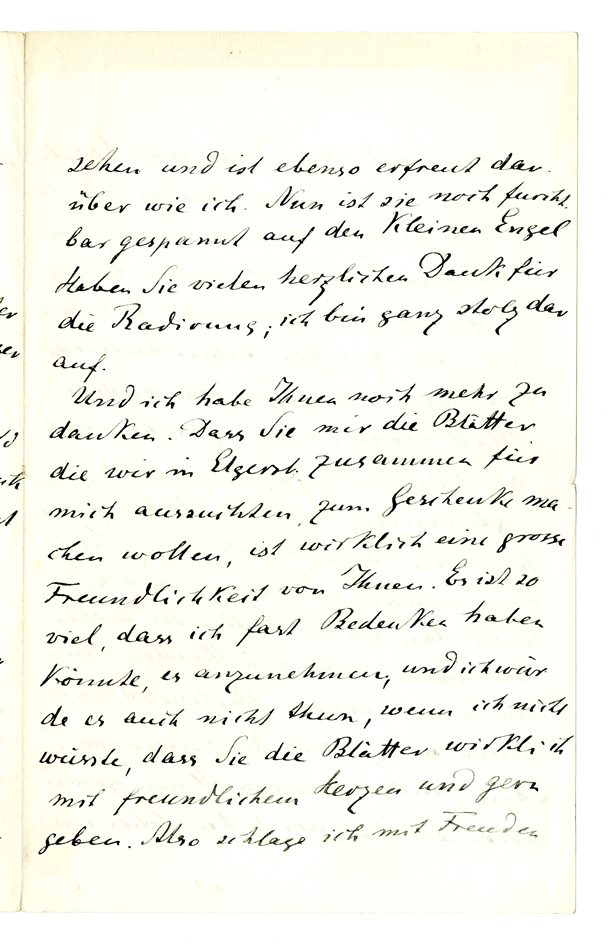 sehen und ist ebenso erfreut dar.
über wie ich. Nun ist sie noch furcht
bar gespannt auf den Kleinen Engel
Haben Sie vielen herzlichen Dank für
die Radirung, ich bin ganz stolz dar
auf.
Und ich habe Ihnen noch mehr zu
danken. Dass Sie mir die Blätter
die wir in Elgersb. zusammen für
mich aussuchten, zum Geschenke ma
chen wollen, ist wirklich eine grosse
Freundlichkeit von Ihnen. Es ist so
viel, dass ich fast Bedenken haben
könnte, es anzunehmen, und ich wür
de es auch nicht thun, wenn ich nicht
wüsste, dass Sie die Blätter wirklich
mit freundlichem Herzen und gern
geben. Also schlage ich mit Freuden